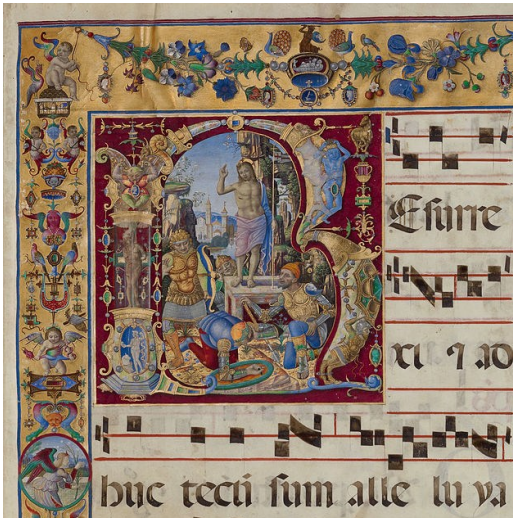 Esurre
xi ⁊ ad
huc tecū sum alle lu ya